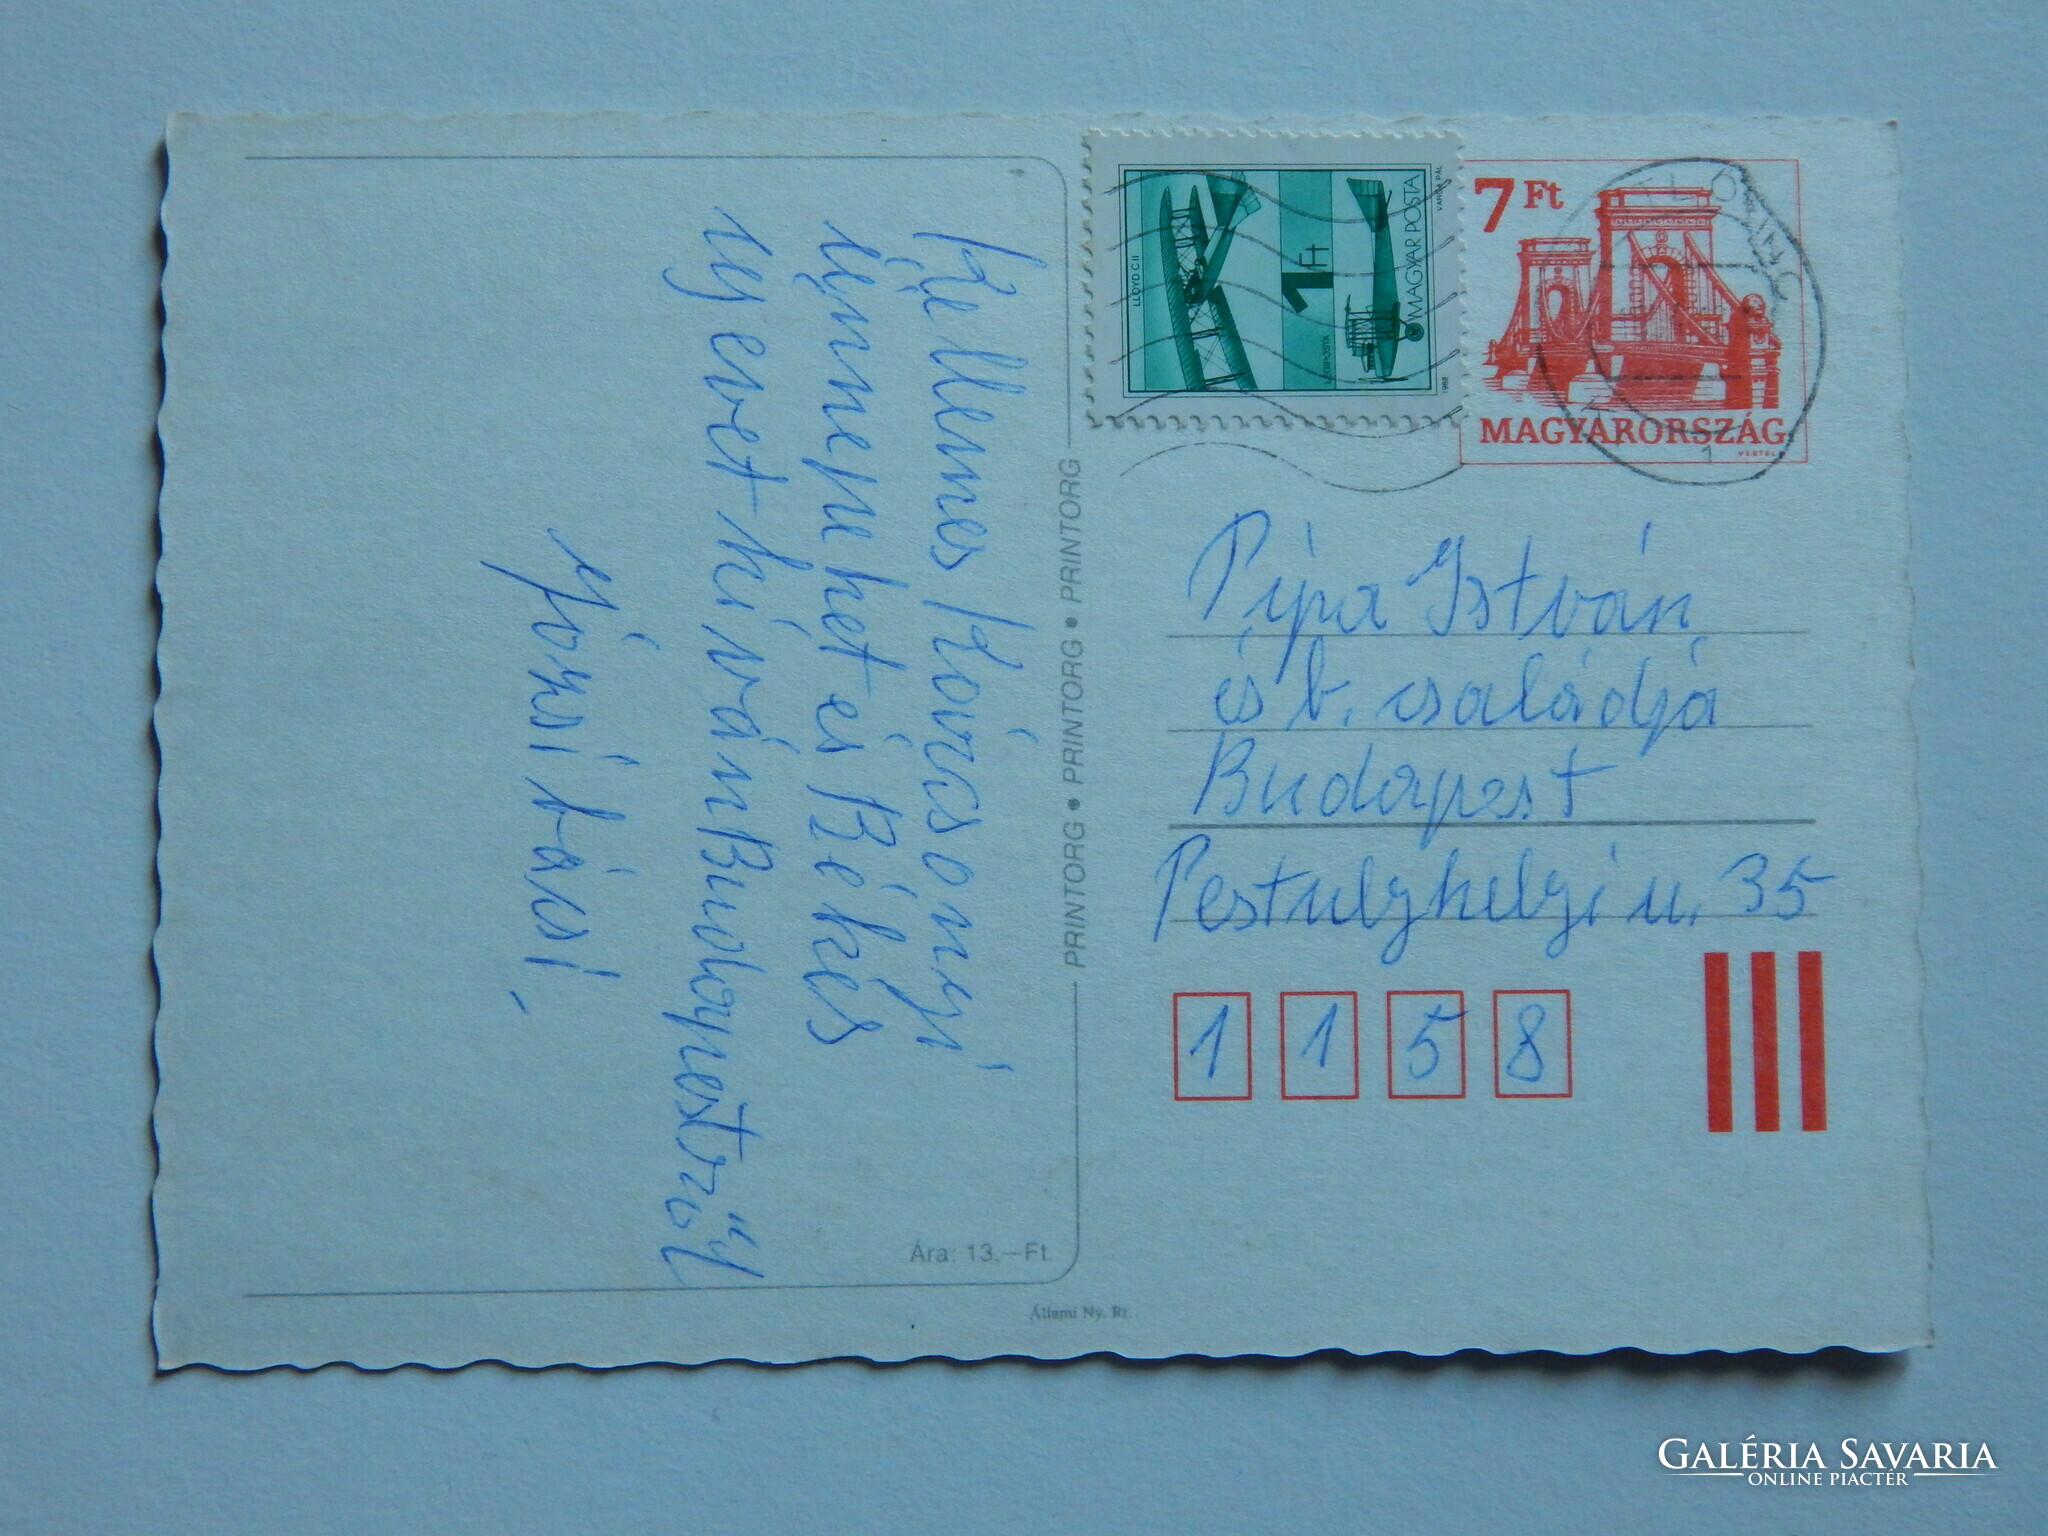 Kellemes Kárácsonyi
ünnepeket és Békés
újévet kíván Budapestről
Józsi bácsi
PRINTORG • PRINTORG • PRINTORG
Ára: 13.—Ft.
Állami Ny. Rt.
LLOYD C II
1 Ft
LÉGIPOSTA
MAGYAR POSTA
VARGA PÁL
1988
7 Ft
MAGYARORSZÁG
VERTEL
Pipa István
és b. családja
Budapest
Pestujhelyi u. 35
1 1 5 8
GALÉRIA SAVARIA
ONLINE PIACTÉR